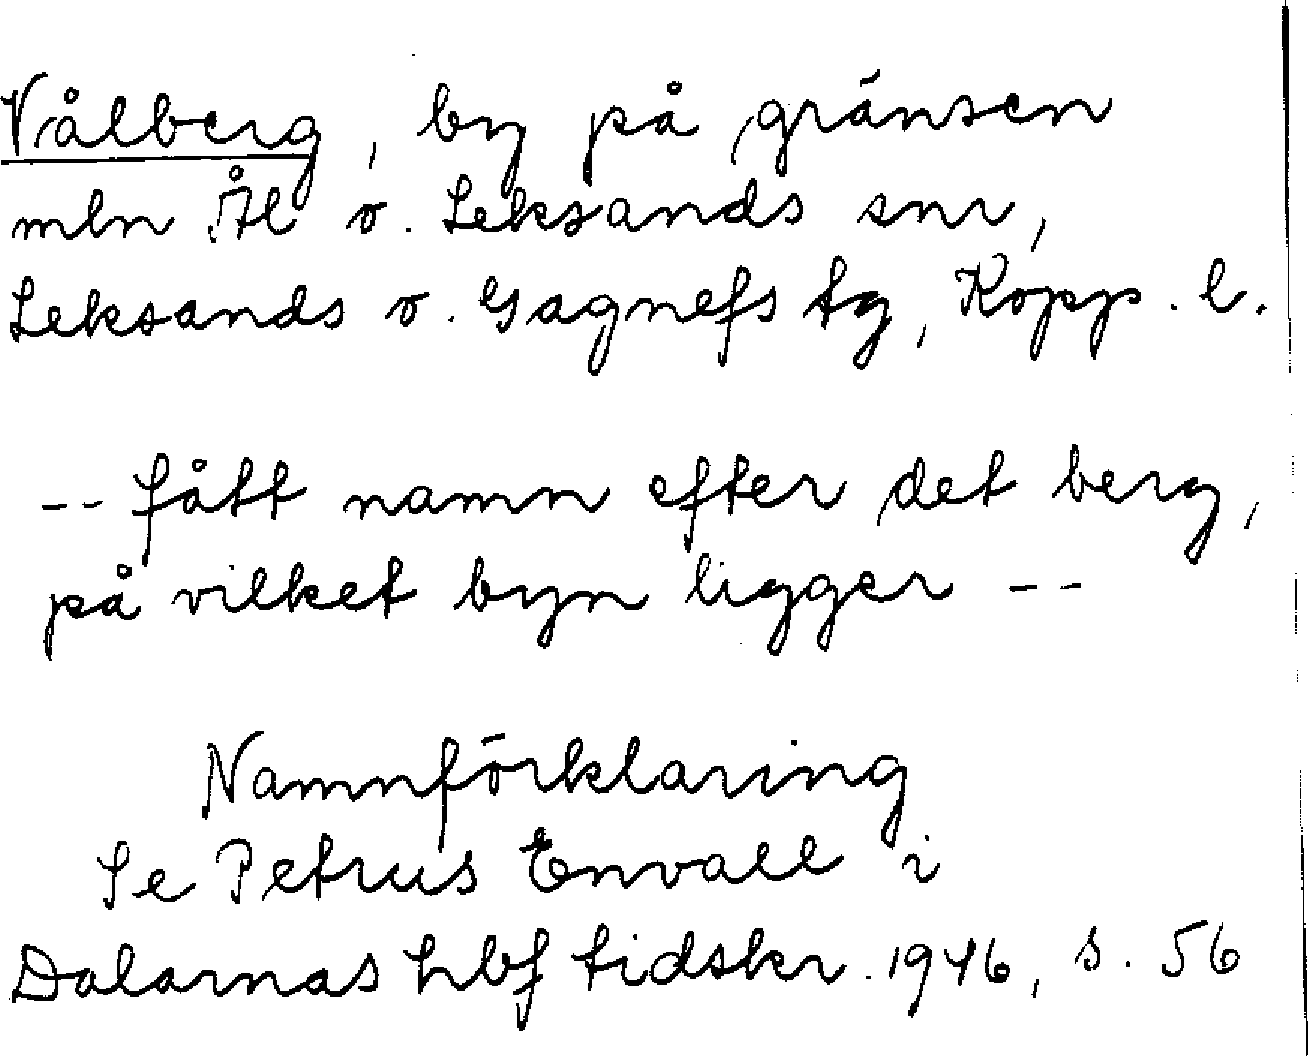 Vålberg, by på gränsen
mln Ål o. Leksands snr,
Leksands o. Gagnefs tg, Kopp. l.
-- fått namn efter det berg,
på vilket byn ligger --
Namnförklaring
Se Petrus Envall i
Dalarnas hbf tidskr. 1946, s. 56